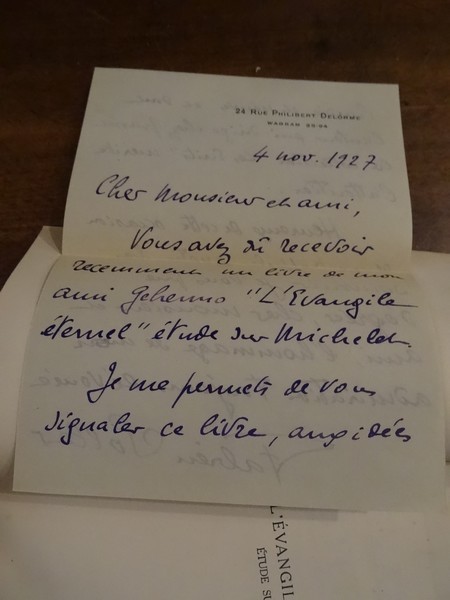 24 RUE PHILIBERT DELORME
WAGRAM
4 nov. 1927
Cher Monsieur et ami,
Vous avez dû recevoir
récemment un livre de mon
ami Gehenno "L'Evangile
éternel" étude sur Michelet.
Je me permets de vous
signaler ce livre, aux idées
L'ÉVANGIL
ÉTUDE SU